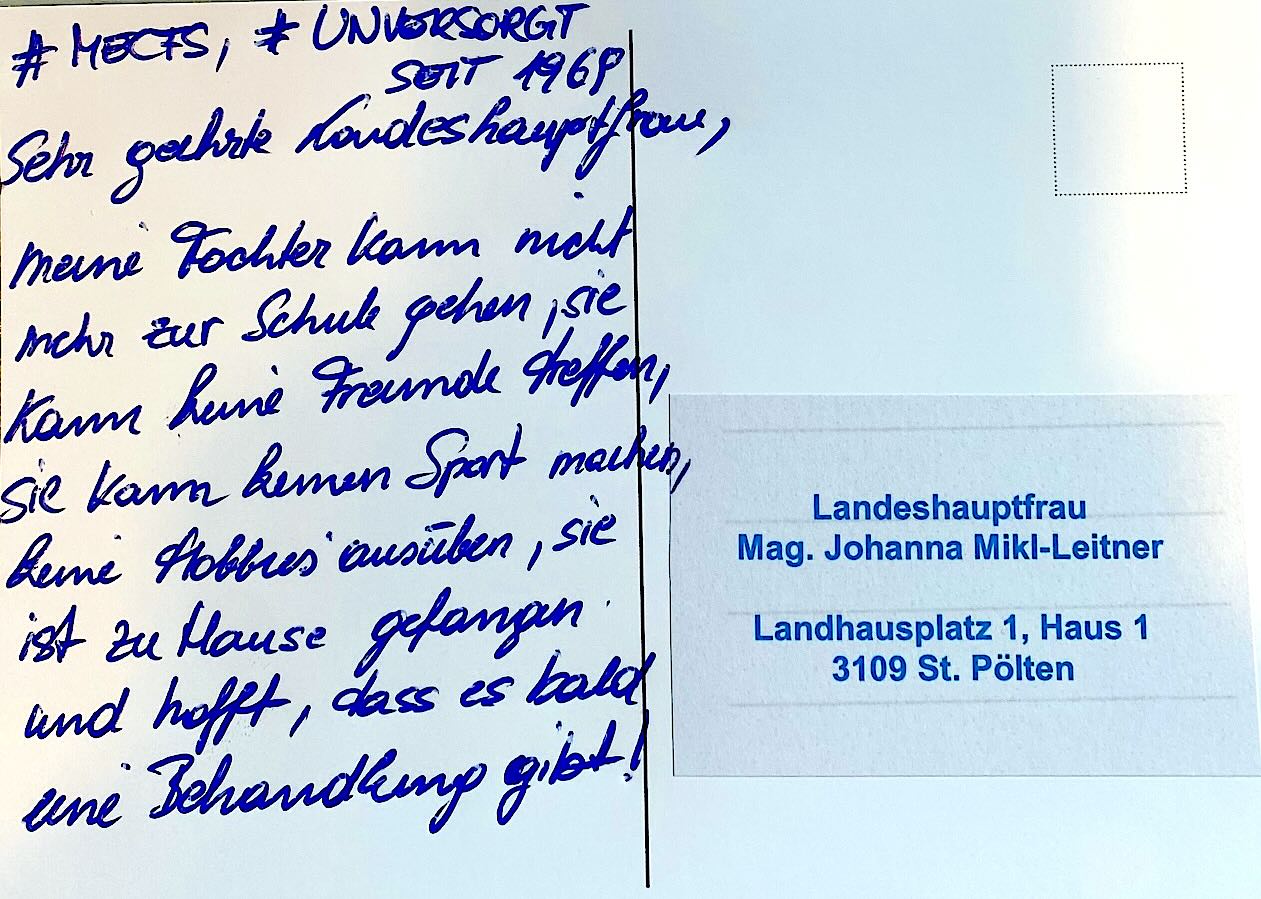 # MECFS, # UNVERSORGT
SEIT 1969
Sehr geehrte Landeshauptfrau,
meine Tochter kann nicht
mehr zur Schule gehen, sie
kann keine Freunde treffen,
sie kann keinen Sport machen,
keine Hobbies ausüben, sie
ist zu Hause gefangen
und hofft, dass es bald
eine Behandlung gibt!
Landeshauptfrau
Mag. Johanna Mikl-Leitner
Landhausplatz 1, Haus 1
3109 St. Pölten